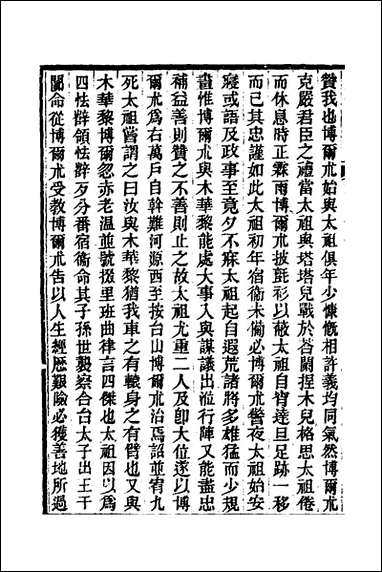 贊我也博爾朮始與太祖俱年少慷慨相許義均同氣然博爾朮
克嚴君臣之禮當太祖與塔塔兒戰於荅闌捏木兒格思太祖倦
而休息時正霖雨博爾朮披氈衫以蔽太祖自宵達旦足跡一移
而已其忠謹如此太祖初年宿衞未備必博爾朮警夜太祖始安
寢或語及政事至竟夕不寐太祖起自遐荒諸將多雄猛而少規
畫惟博爾朮與木華黎能處大事入與謀議出涖行陣又能盡忠
補益善則贊之不善則止之故太祖尤重二人及卽大位遂以博
爾朮爲右萬戶自斡難河源西至按台山博爾朮治焉詔並宥九
死太祖嘗謂之曰汝與木華黎猶我車之有轅身之有臂也又與
木華黎博爾忽赤老溫並號掇里班曲律言四傑也太祖因以爲
四怯辥領怯辥歹分番宿衞命其子孫世襲察合台太子出王于
闐命從博爾朮受敎博爾朮告以人生經歷艱險必獲善地所過